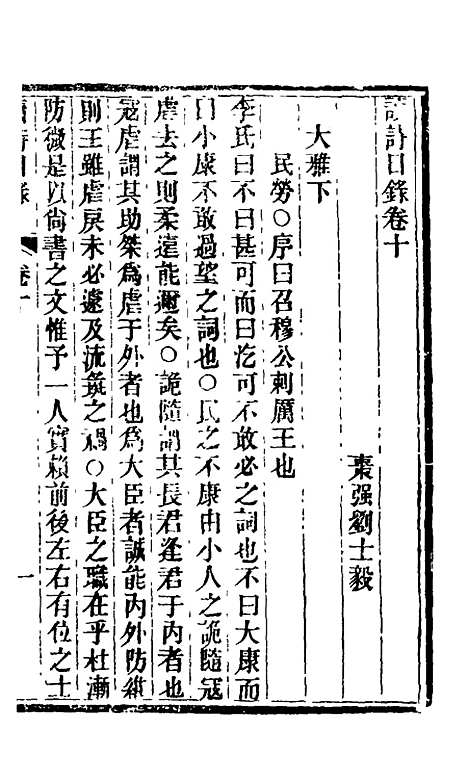 讀詩日錄卷十
棗强劉士毅
大雅下
民勞○序曰召穆公刺厲王也
李氏曰不曰甚可而曰汔可不敢必之詞也不曰大康而
曰小康不敢過望之詞也○民之不康由小人之詭隨寇
虐去之則柔遠能邇矣○詭隨謂其長君逢君于內者也
寇虐謂其助桀爲虐于外者也爲大臣者誠能內外防維
則王雖虐戾未必遽及流彘之禍○大臣之職在乎杜漸
防微是以尙書之文惟予一人實賴前後左右有位之士
讀詩日錄 卷十 一